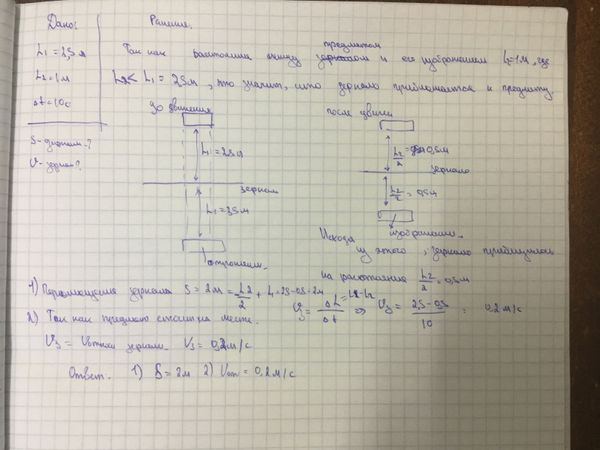 Дано:
L₁ = 2,5 м
L₂ = 1 м
Δt = 10с
S - ?
V - ?
Решение.
Так как расстояние между предметом и его изображением L₂ = 1м, где
L₂ < L₁ = 2,5м, это значит, что зеркало приближается к предмету.
До движения
L₁ = 2,5м
зеркало
L₁ = 2,5м
после движ
L₂/2 = 0,5м
зеркало
L₂/2 = 0,5м
изображение.
Исходя
из этого, зеркало приблизилось
на расстояние L₂/2 = 0,5м
1) Перемещение зеркала S = 2м = L₂/2 + L₁ = 2,5 - 0,5 = 2м
2) Так как предмет стоит на месте.
V₃ = ΔL/Δt ⇒ V₃ = 2,5 - 0,5/10 = 0,2 м/с
V₃ = зеркала. V₃ = 0,2 м/с
Ответ. 1) S = 2м 2) Vот = 0,2 м/с